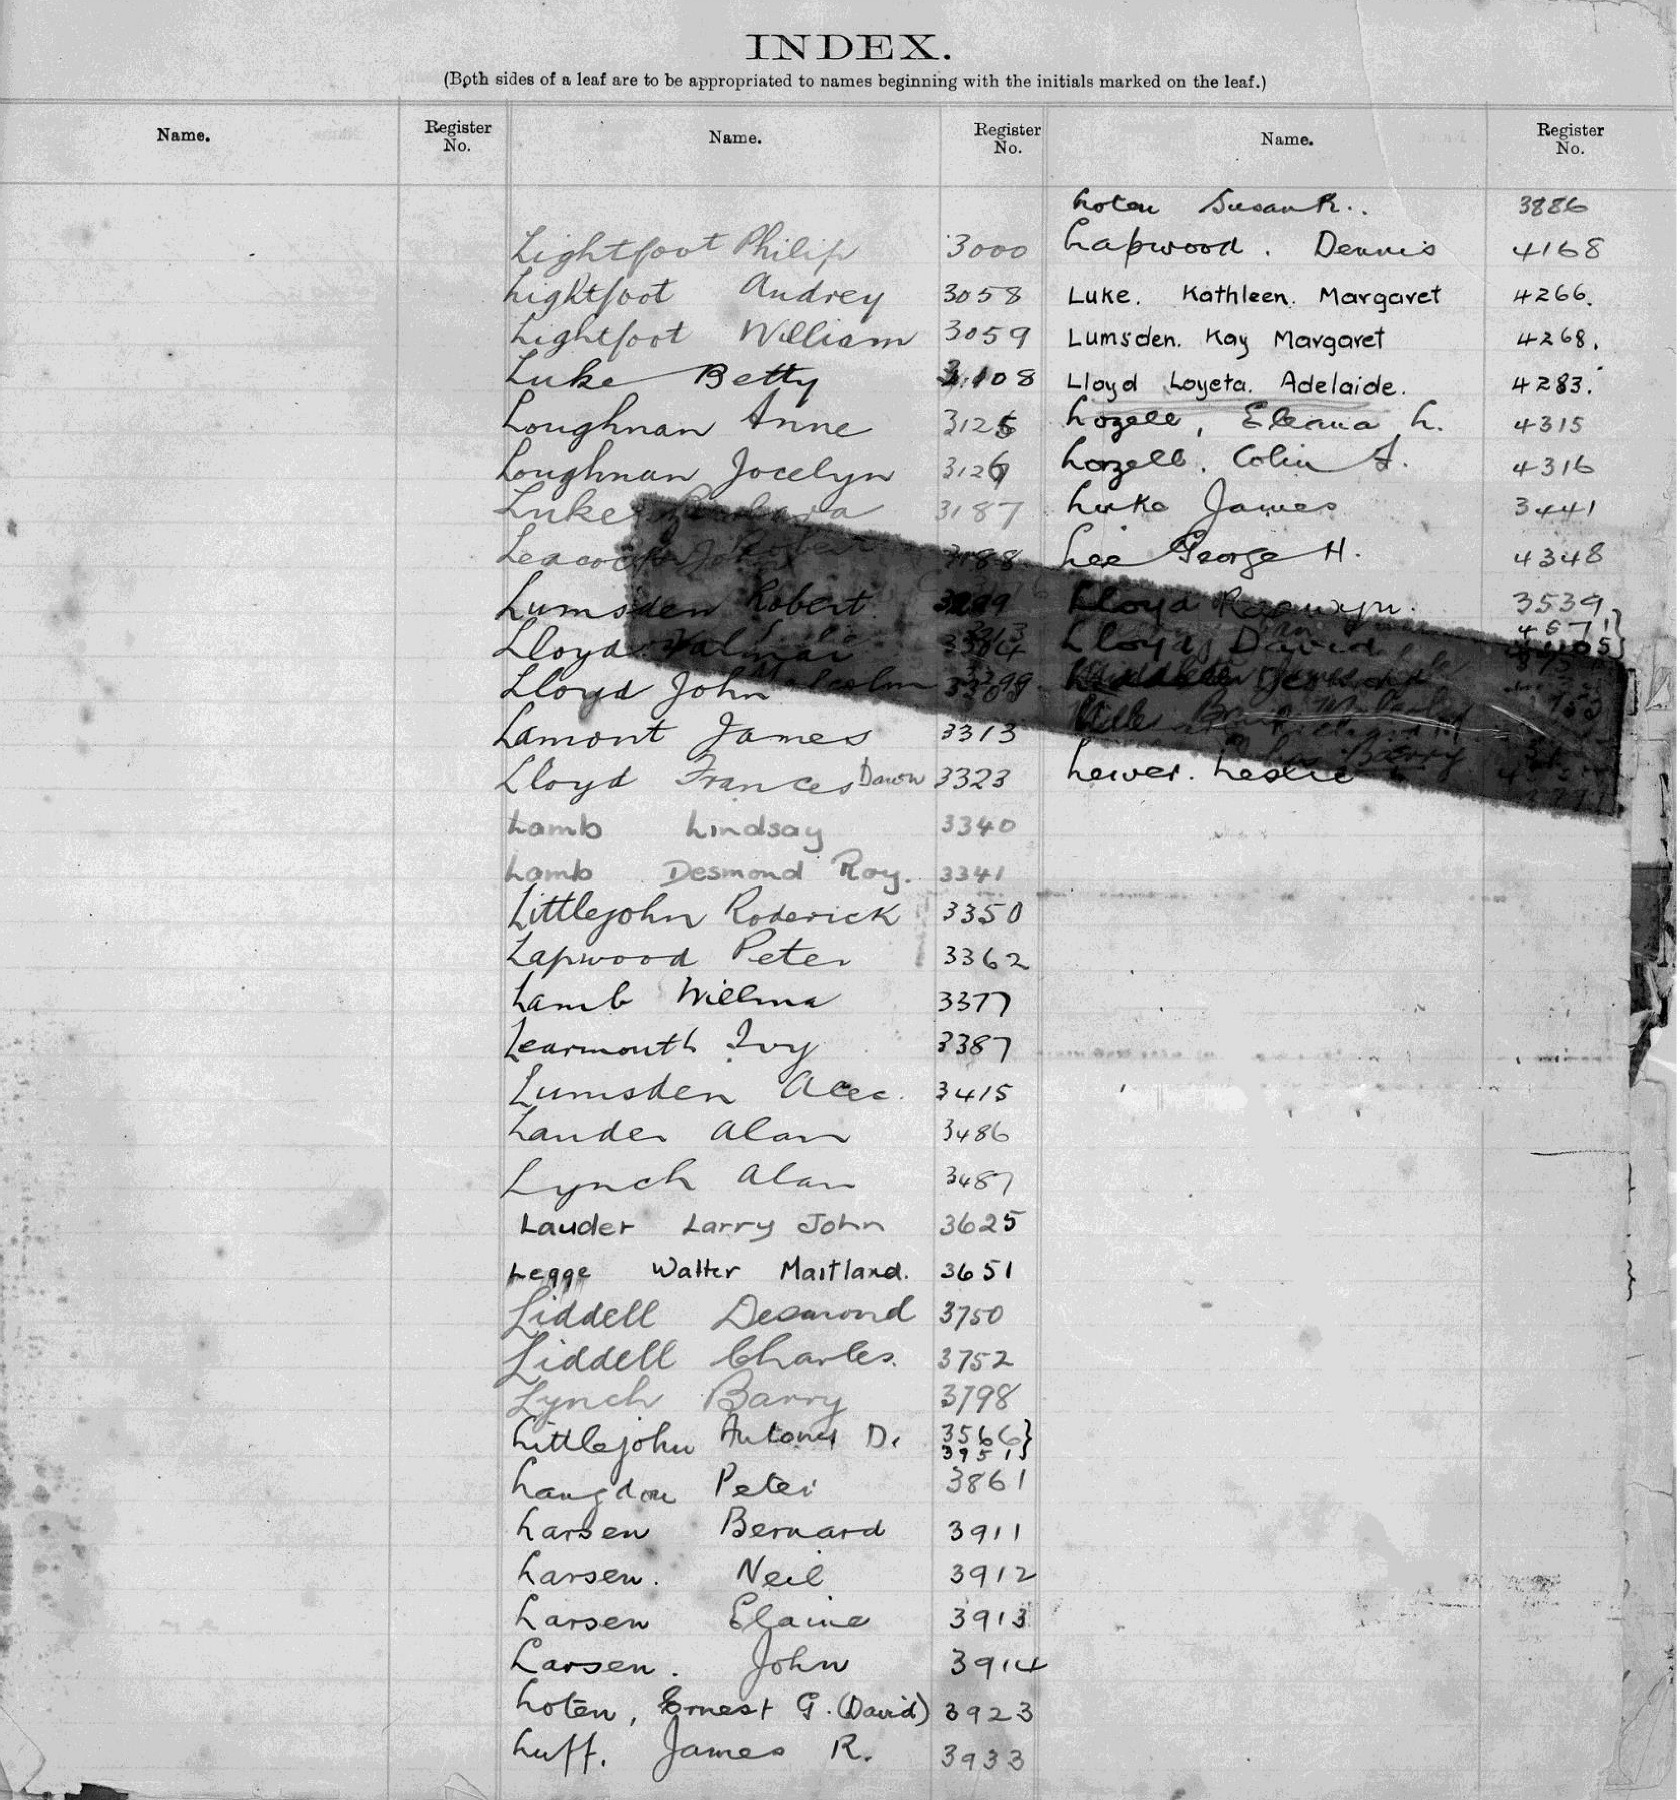 INDEX.
(Both sides of a leaf are to be appropriated to names beginning with the initials marked on the leaf.)
Name. Register No. Name. Register No. Name. Register No.
Lightfoot Philip 3000
Lightfoot Audrey 3058
Lightfoot William 3059
Luke Betty 3108
Loughnan Anne 3125
Loughnan Jocelyn 3126
Luke Barbara 3187
Leacock John 3188
Lumsden Robert
Lloyd
Lloyd John
Lamont James 3313
Lloyd Frances Dawn 3323
Lamb Lindsay 3340
Lamb Desmond Roy. 3341
Littlejohn Roderick 3350
Lapwood Peter 3362
Lamb Wilma 3377
Learmouth Ivy 3387
Lumsden Alec. 3415
Lauder Alan 3486
Lynch Alan 3487
Lauder Larry John 3625
Legge Walter Maitland. 3651
Liddell Desmond 3750
Liddell Charles. 3752
Lynch Barry 3798
Littlejohn D. 3566}
3951}
Langdon Peter 3861
Larsen Bernard 3911
Larsen. Neil 3912
Larsen Elaine 3913
Larsen. John 3914
Loten, Ernest G. (David) 3923
Luff. James R. 3933
Loten Susan R.. 3886
Lapwood. Dennis 4168
Luke. Kathleen. Margaret 4266.
Lumsden. Kay Margaret 4268.
Lloyd Loyeta. Adelaide. 4283.
Lozell, L. 4315
Lozell. Colin A. 4316
Luke James 3441
Lee George H. 4348
Lloyd 3539
Lloyd David
Lewer. Leslie